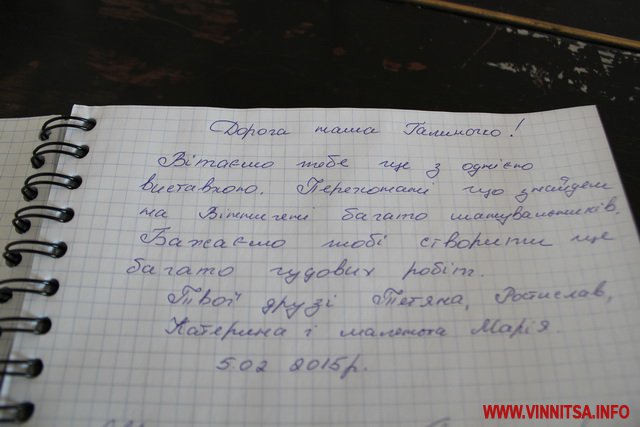 Дорога наша Галиночко!
Вітаємо тебе ще з однією
виставкою. Переконані що знайдеш
на Вінничені багато шанувальників.
Бажаємо тобі створити ще
багато чудових робіт.
Твої друзі Тетяна, Ростислав,
Катерина і маленька Марія.
5.02 2015р.
WWW.VINNITSA.INFO